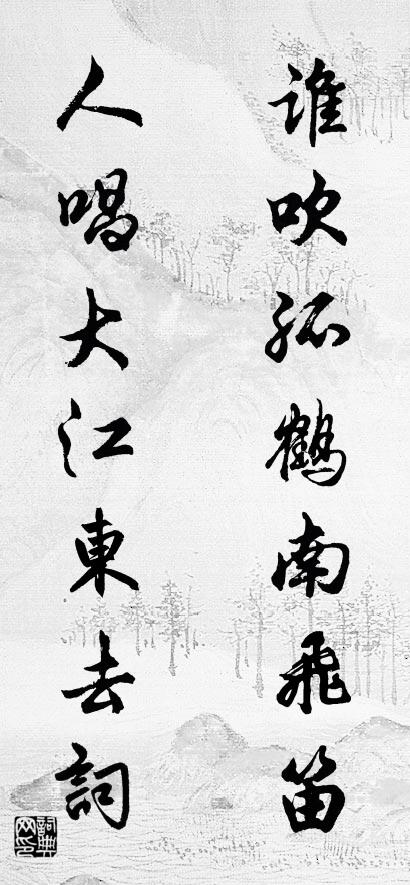 誰吹孤鶴南飛笛
人唱大江東去詞
詞典网印